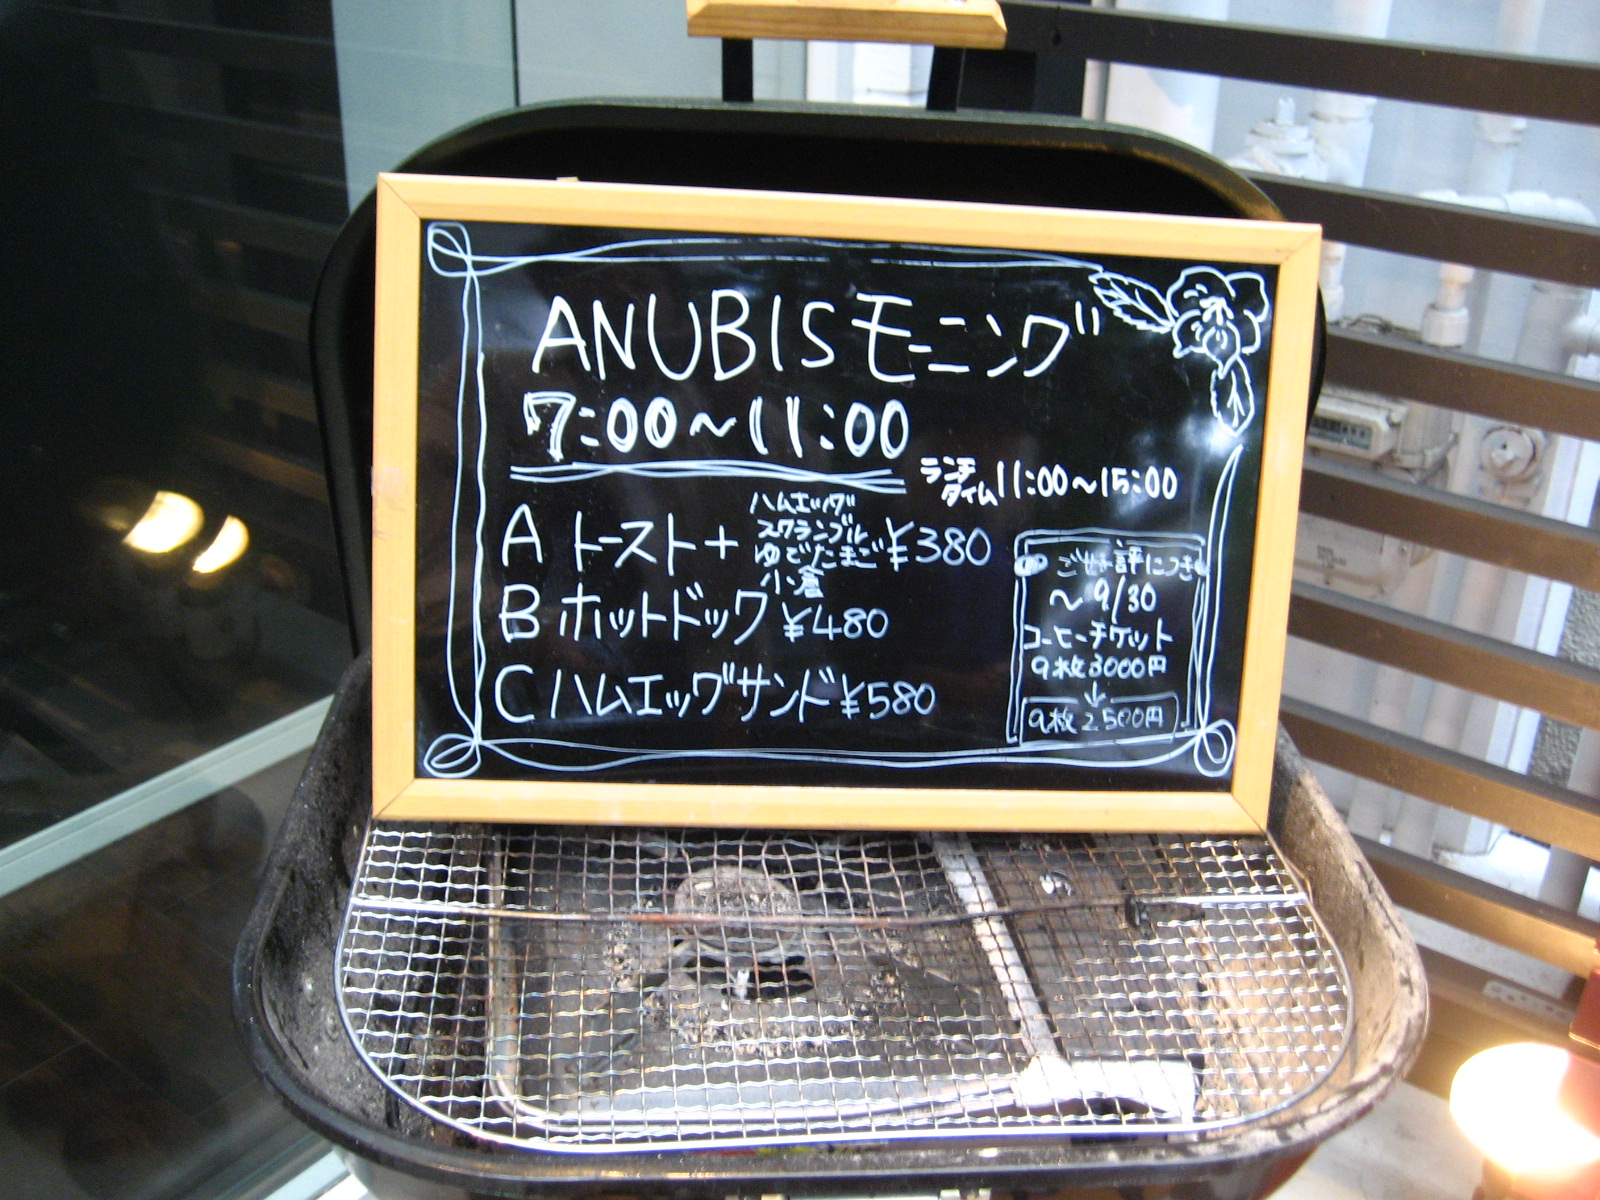 ANUBISモーニング
7:00〜11:00
ランチ
タイム 11:00〜15:00
A トースト+ ハムエッグ
スクランブル
ゆでたまご
小倉
¥380
B ホットドッグ ¥480
C ハムエッグサンド ¥580
につき
〜9/30
コーヒーチケット
9枚3000円
↓
9枚2500円